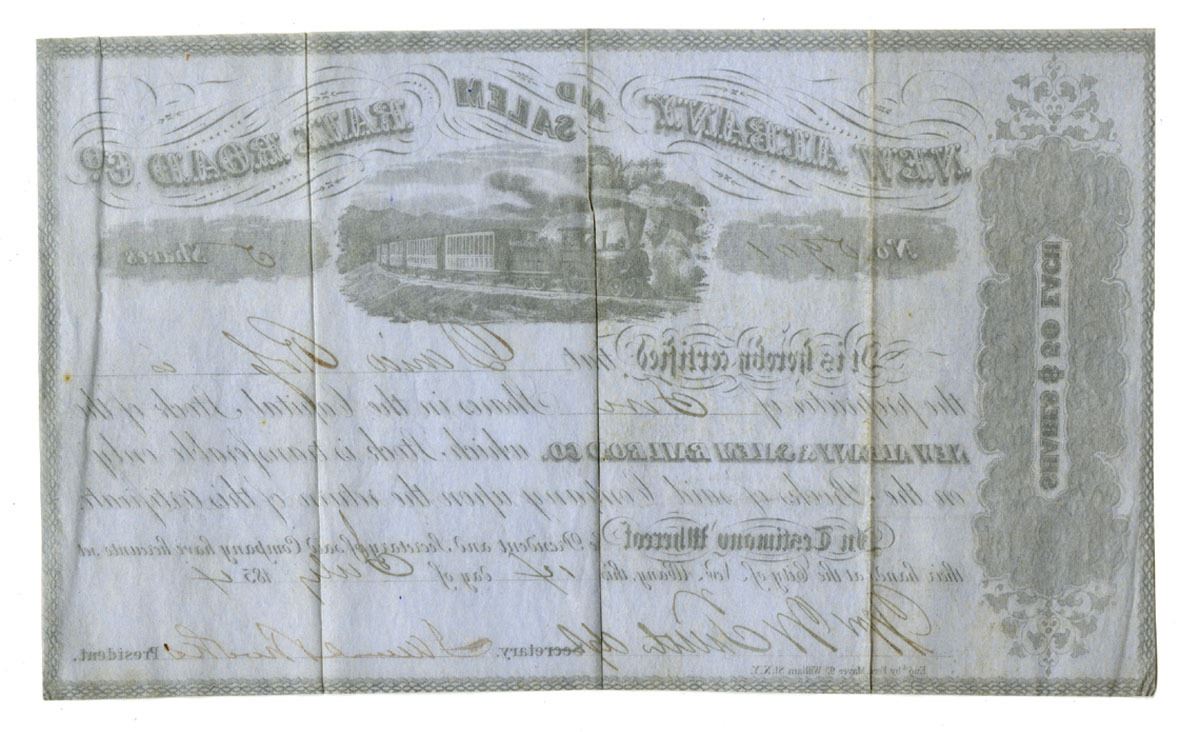 NEW ALBANY AND SALEM RAIL ROAD Co.
No. 5901
5 Shares
SHARES $ 50 EACH
It is hereby certified that Davis is
the proprietor of Shares in the Capital Stock of the
NEW ALBANY & SALEM RAILROAD CO. which Stock is transferable only
on the Books of said Company upon the return of this Certificate.
In Testimony Whereof the President and Secretary of said Company have hereunto set
their hands at the City of New Albany, this 14 day of July 1854
Wm Secretary. James Brooks President.
Engd by Ferd. Mayer 93 William St. N.Y.